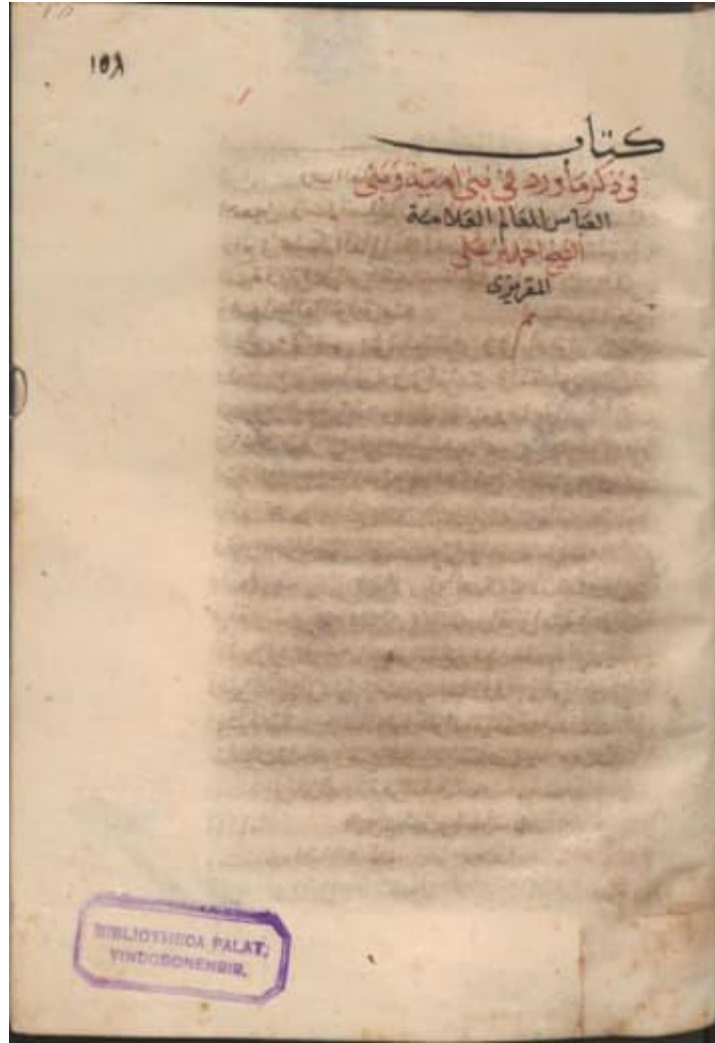 ١٥٨
كتاب
في ذكر ما ورد في بني امية وبني
العباس للعالم العلامة
الشيخ احمد بن علي
المقريزي
BIBLIOTHECA PALAT.
VINDOBONENSIS.